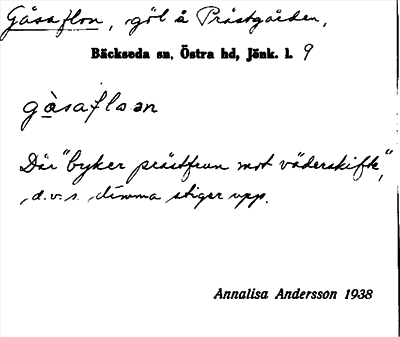 Gåsaflon, göl å Prästgården,
Bäckseda sn, Östra hd, Jönk. l. 9
gåsafloan
Där "byker prästfrun mot väderskifte",
d.v.s. dimma stiger upp.
Annalisa Andersson 1938